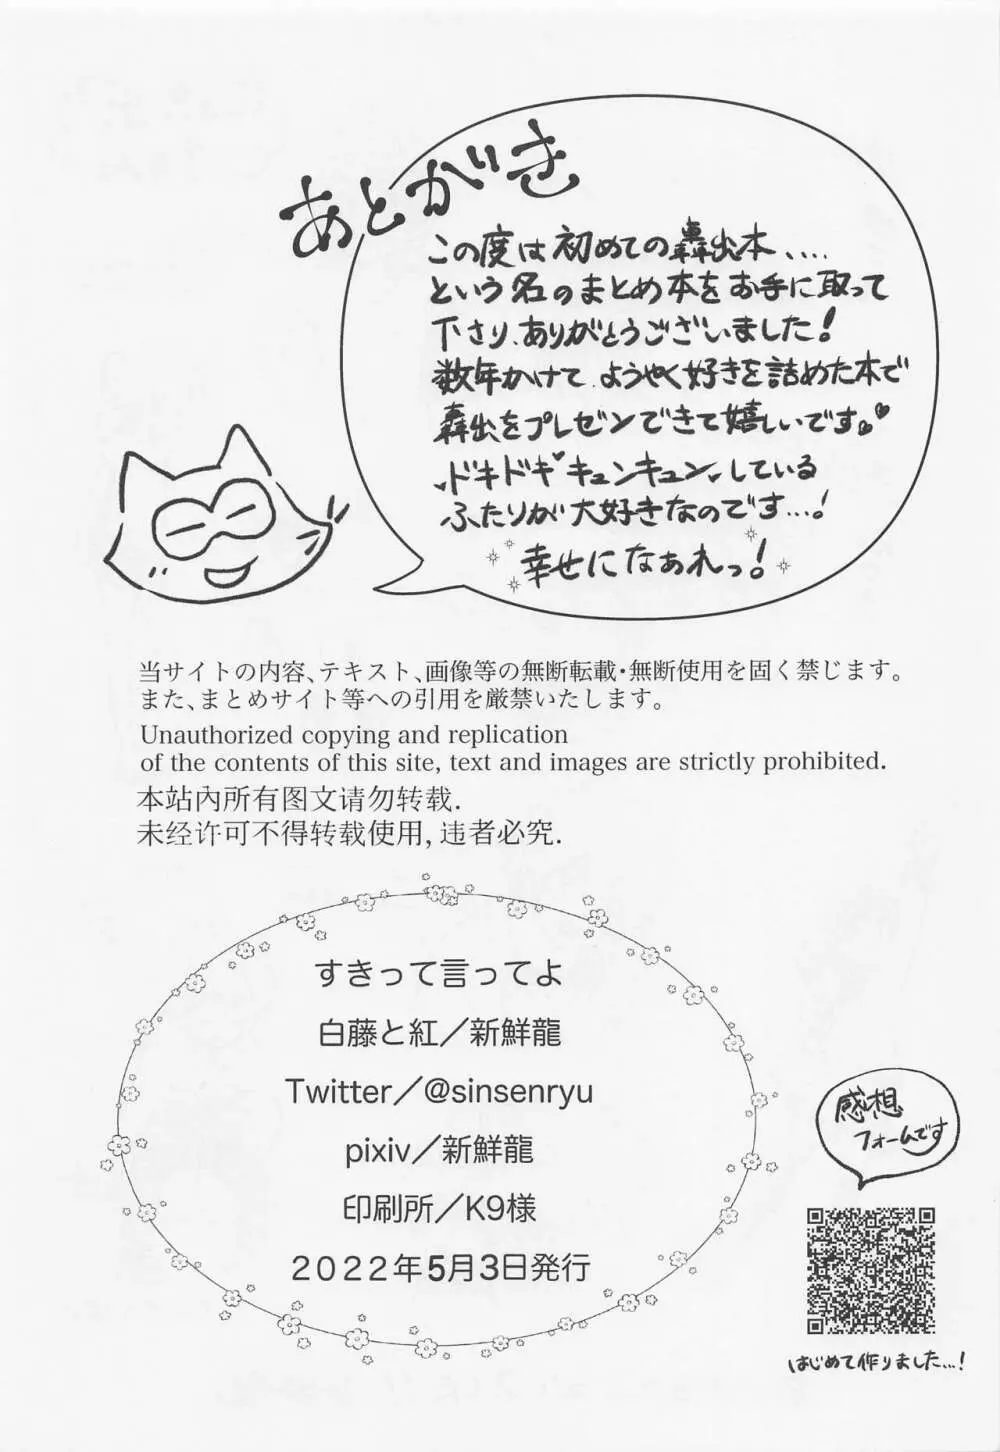 あとがき
この度は初めての轟出本....
という名のまとめ本をお手に取って
下さり、ありがとうございました!
数年かけて、ようやく好きを詰めた本で
轟出をプレゼンできて嬉しいです。
ドキドキキュンキュンしている
ふたりが大好きなのです...!
幸せになあれっ!
当サイトの内容、テキスト、画像等の無断転載・無断使用を固く禁じます。
また、まとめサイト等への引用を厳禁いたします。
Unauthorized copying and replication
of the contents of this site, text and images are strictly prohibited.
本站内所有图文请勿转载.
未经许可不得转载使用, 违者必究.
すきって言ってよ
白藤と紅／新鮮龍
Twitter／@sinsenryu
pixiv／新鮮龍
印刷所／K9様
２０２２年５月３日発行
感想
フォームです
はじめて作りました...!